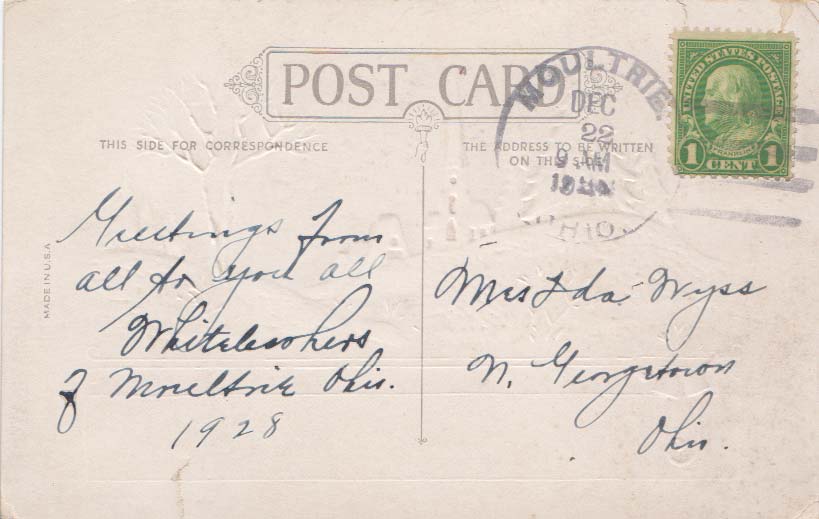 POST CARD
THIS SIDE FOR CORRESPONDENCE
THE ADDRESS TO BE WRITTEN
ON THIS SIDE
MOULTRIE.
DEC
22
9 AM
OHIO.
UNITED STATES POSTAGE
FRANKLIN
1 CENT 1
MADE IN U.S.A
Greetings from
all to you all
of Moultrie Ohio.
1928
Mrs Ida Wyss
N. Georgetown
Ohio.